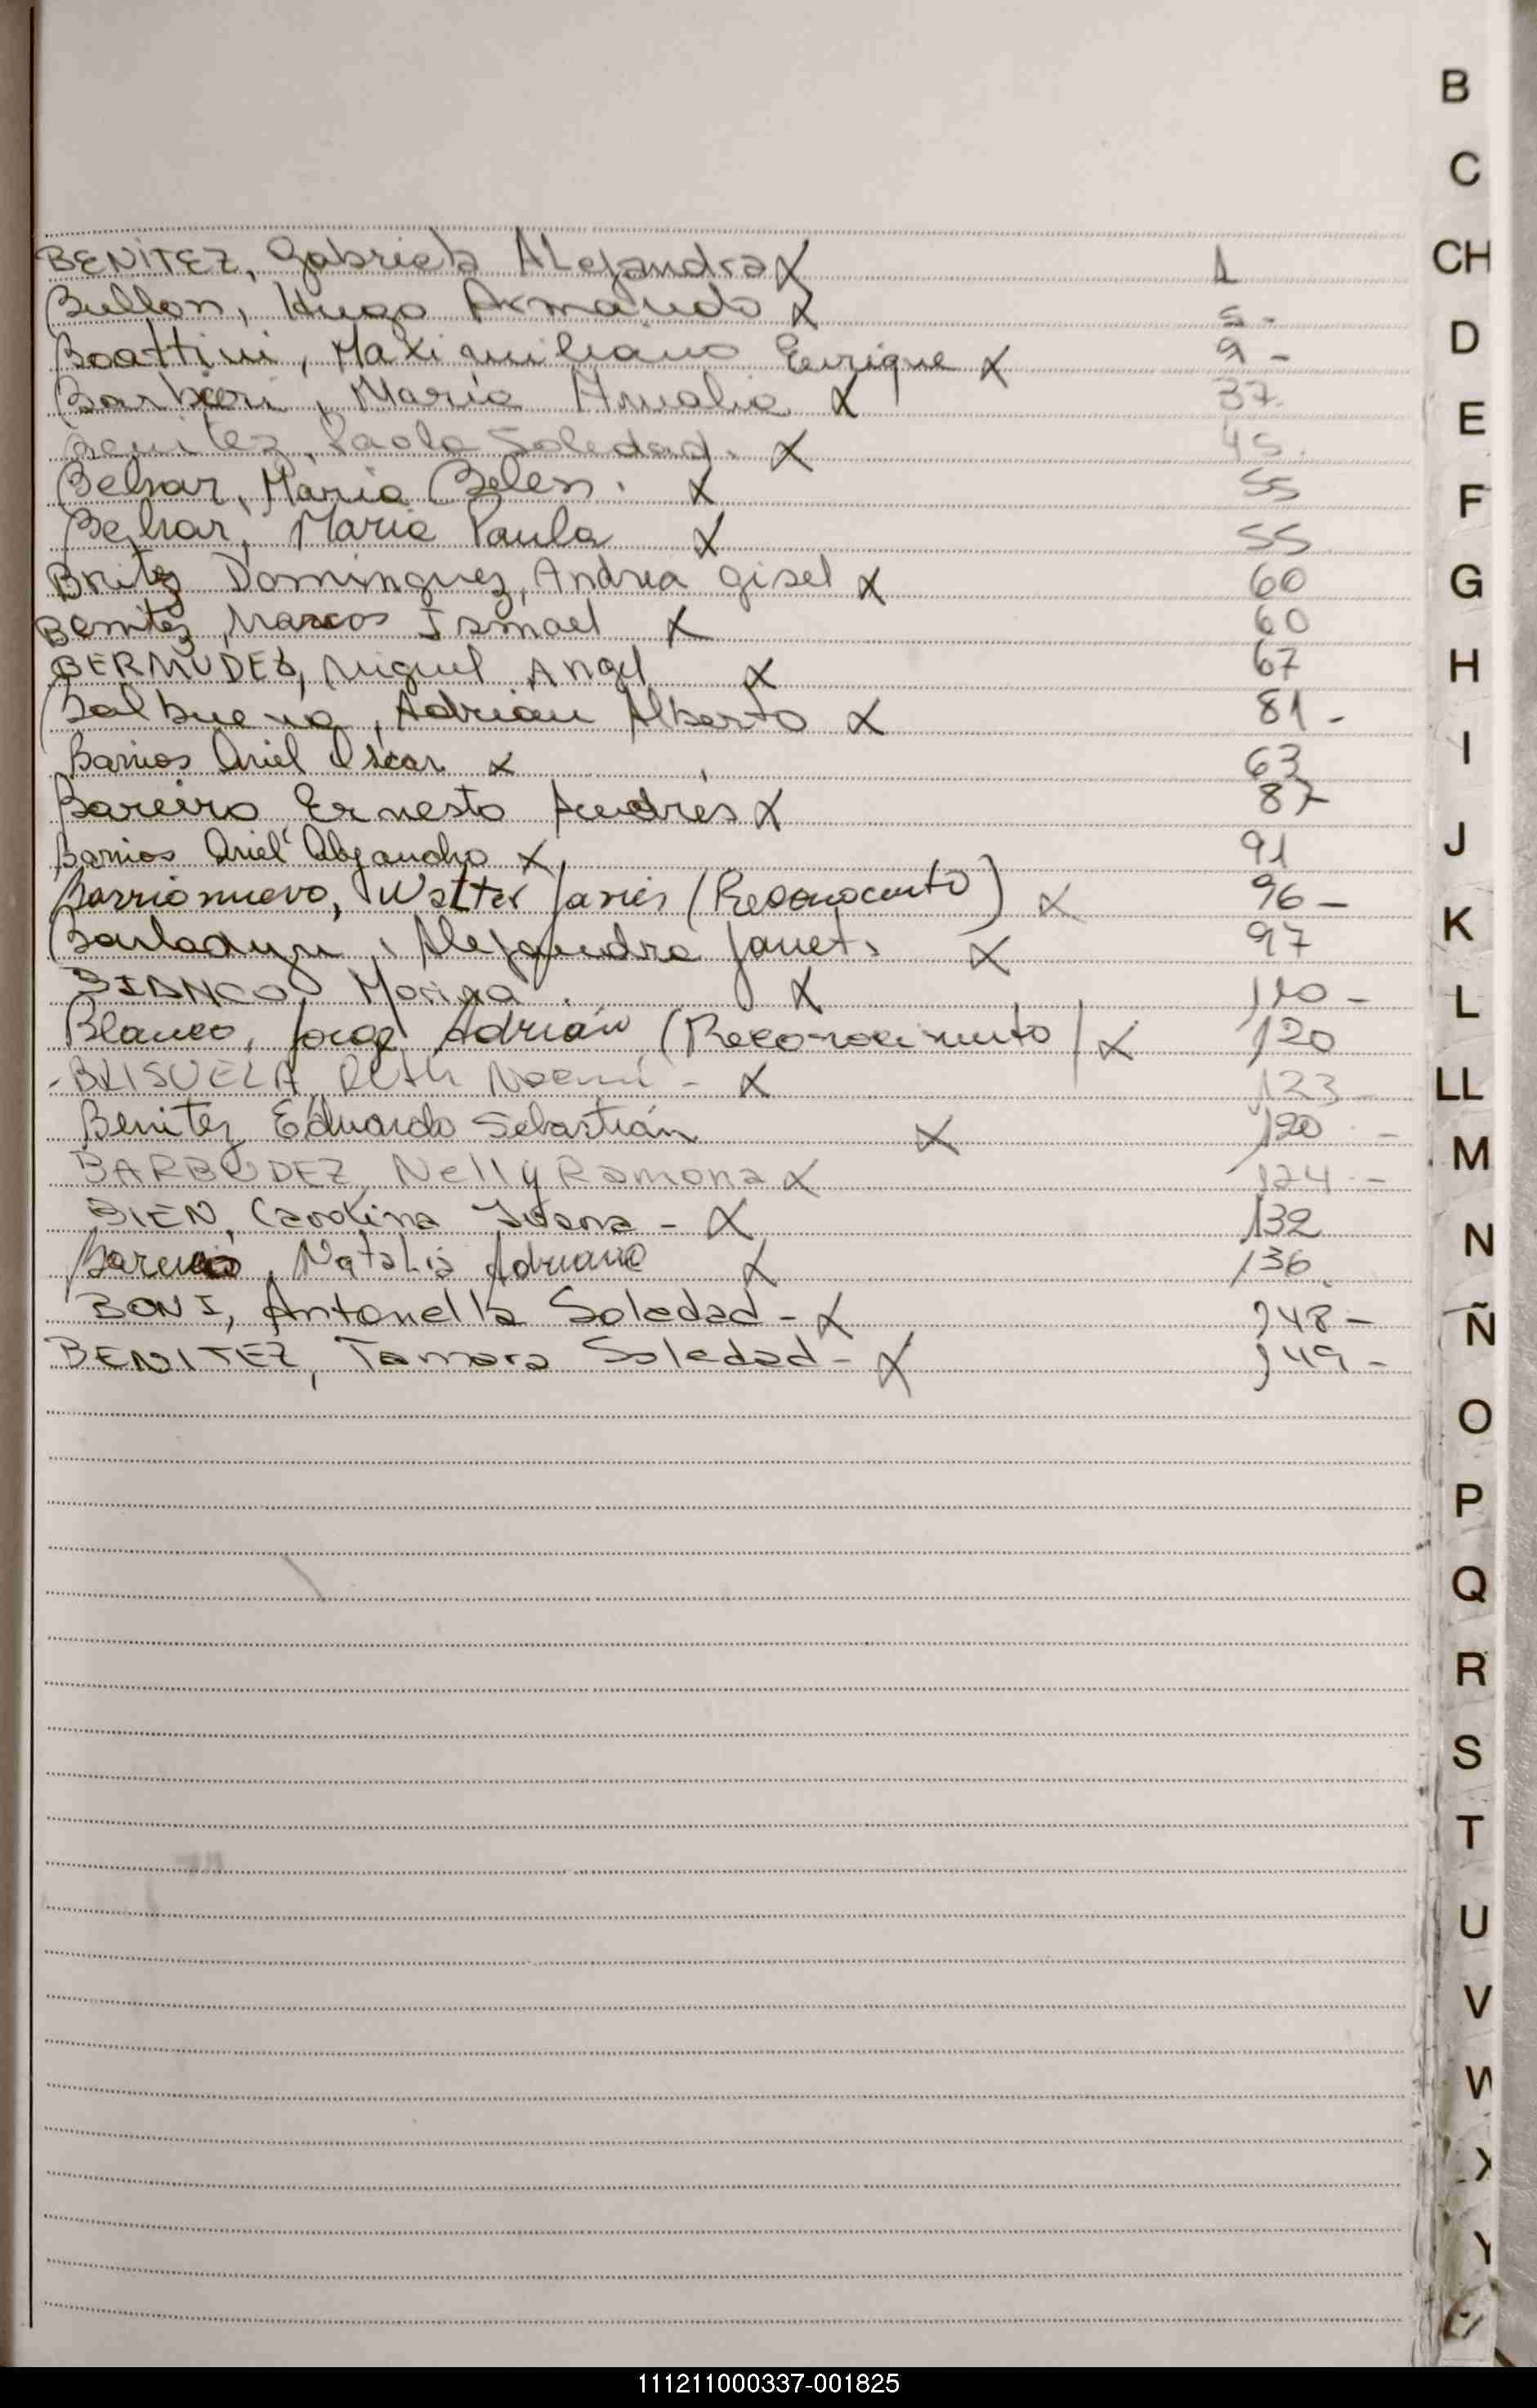 B
C
BENITEZ, Gabriela Alejandra X 1
CH
Bullon, Hugo Armando X 5-
D
Boattini, Maximiliano Enrique X 9-
Barbieri, María Amalia X 37
E
Benitez, Paola Soledad. X 45.
Behar, Maria Belen. X 55
F
Behar, Maria Paula X 55
Britez Dominguez, Andrea gisel X 60
G
Benitez, Marcos Ismael X 60
BERMUDEZ, Miguel Angel X 67
H
Balbuena, Adrian Alberto X 81-
Barrios Ariel Oscar X 63
I
Bareiro Ernesto Andrés X 87
Barrios Ariel Alejandro X 91
J
Barrionuevo, Walter Javier (Reconocimto) X 96-
K
Alejandra Janet. X 97
BIANCO, Marina. X 110-
L
Blanco, Jorge Adrián (Reconocimiento) X 120
-BRISUELA, Ruth Noemi- X 123-
LL
Benitez Eduardo Sebastián X 120-
BARBUDEZ, Nelly Ramona X 124-
M
BIEN, Carolina Juana- X 132
N
Natalia Adriana X 136.
BONI, Antonella Soledad- X 148-
Ñ
BENITEZ, Tamara Soledad- X 149-
O
P
Q
R
S
T
U
V
W
X
Y
111211000337-001825